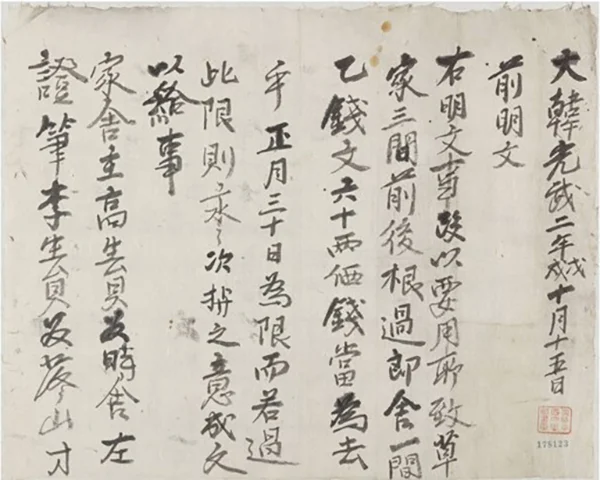 大韓光武二年戊戌十月十五日
前明文
右明文事段以要用所致草
家三間前後根過郎舍一間
乙錢文六十兩価錢當為去
乎正月三十日為限而若過
此限則永〻次持之意成文
以給事
家舍主高生員奴時舍左
證筆李生員奴山寸
175123